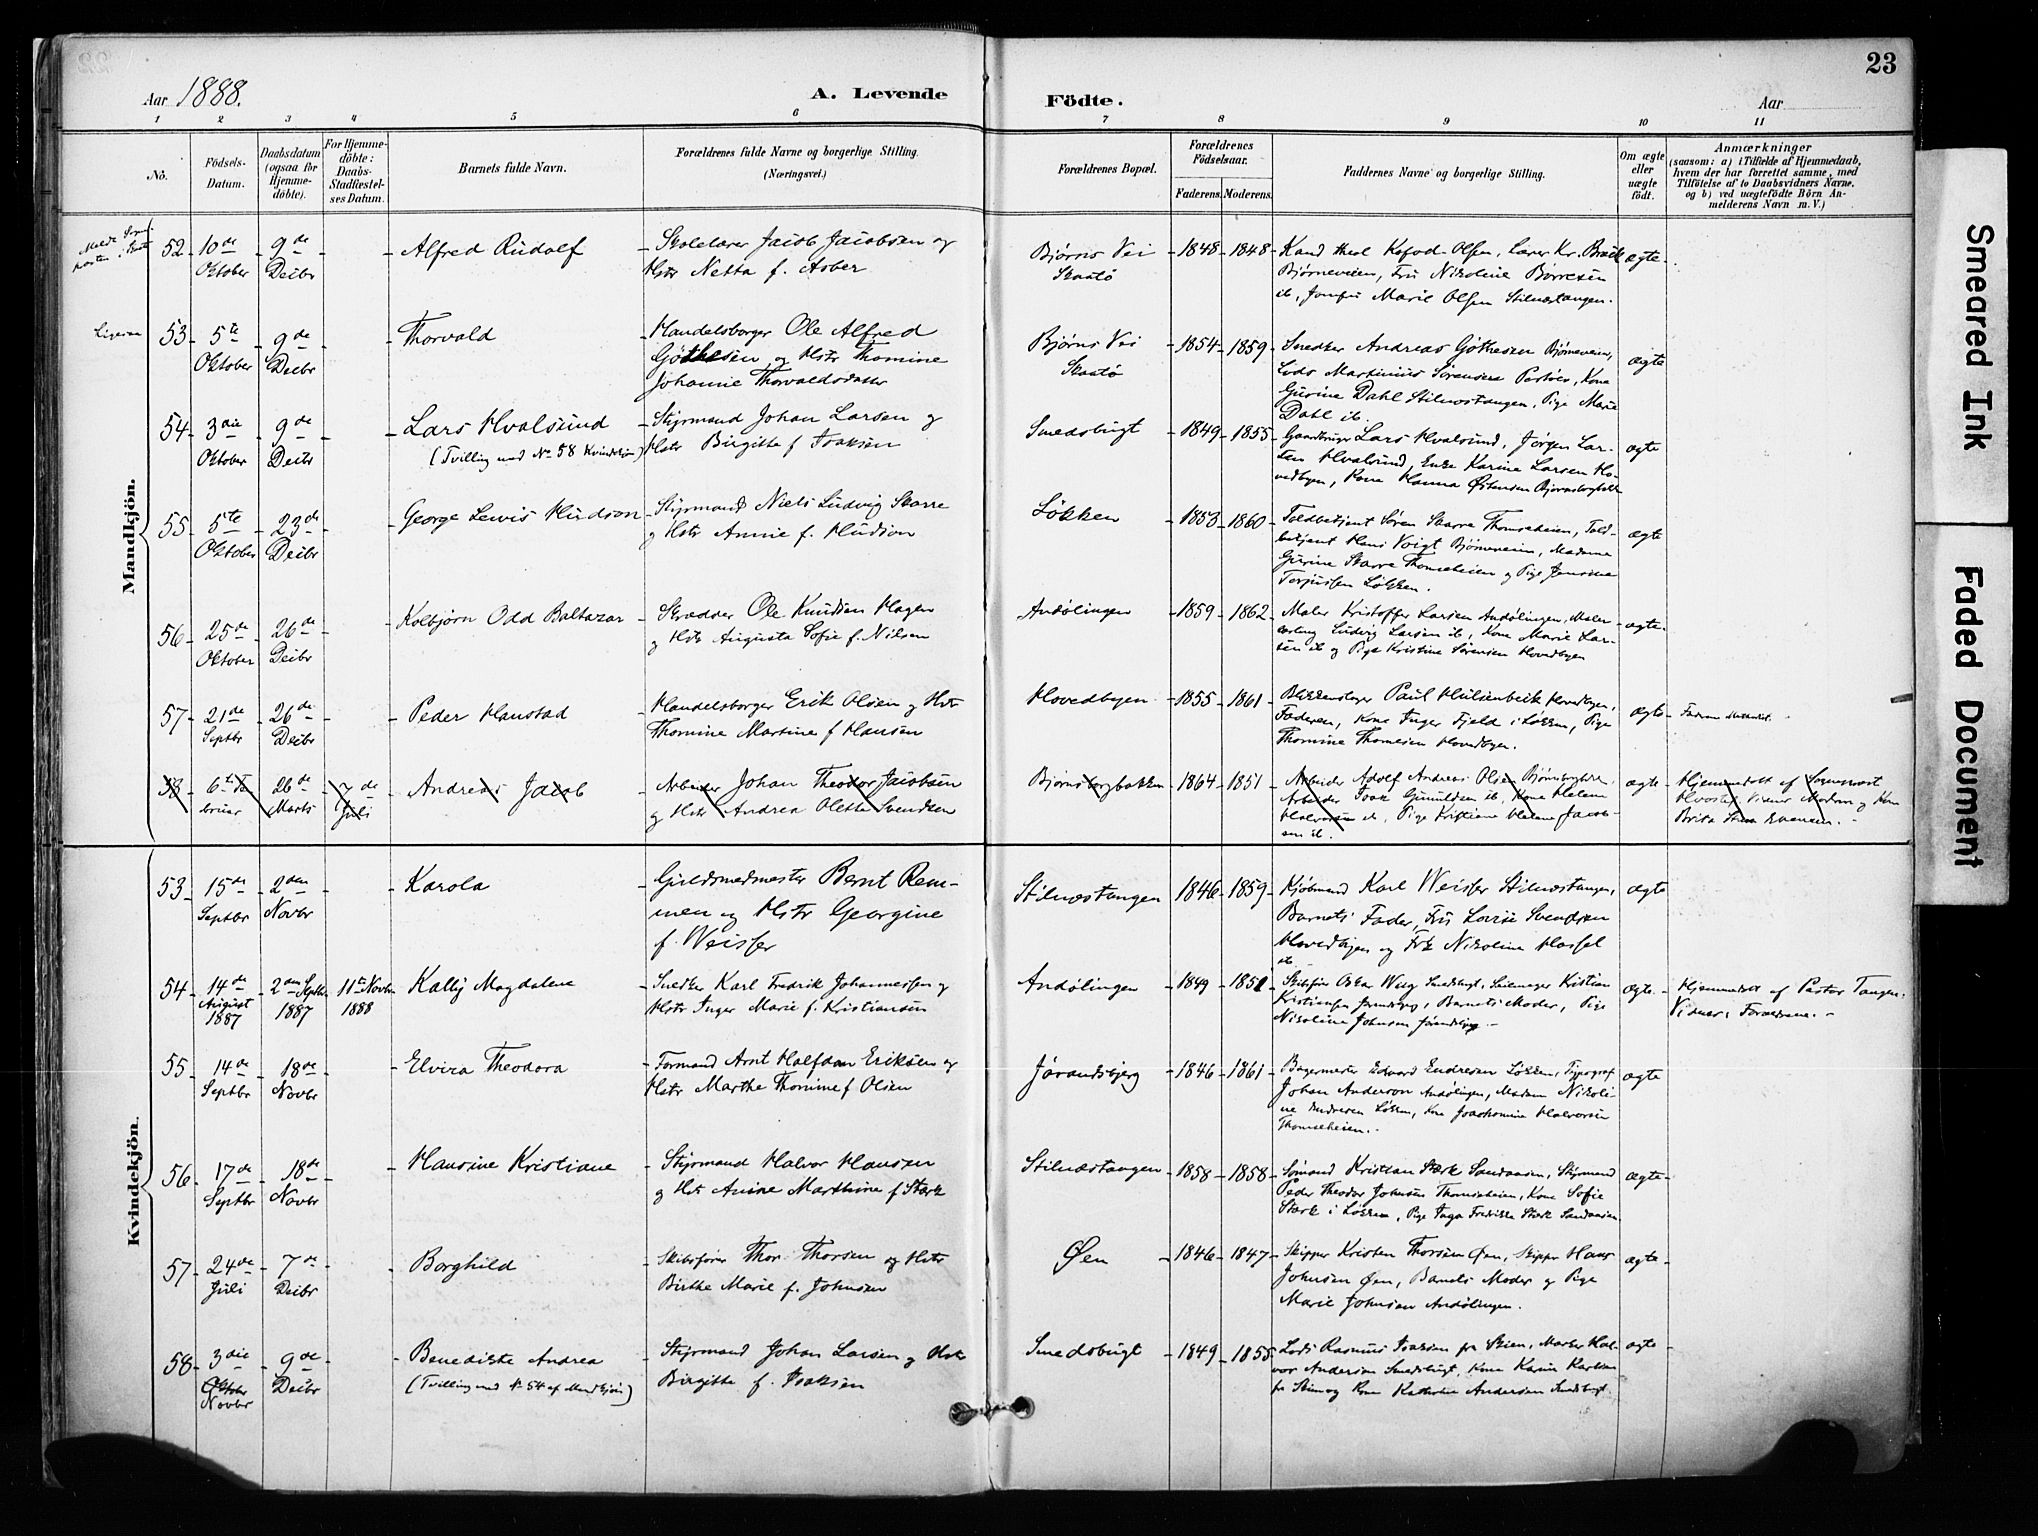 23
Aar 1888.
A. Levende
Födte.
Aar
1 2 3 4 5 6 7 8 9 10 11
No.
Födsels-Datum.
Daabsdatum (ogsaa for Hjemme-döbte).
For Hjemme-döbte: Daabs-Stadfæstel-ses Datum.
Barnets fulde Navn.
Forældrenes fulde Navne og borgerlige Stilling.
(Næringsvei.)
Forældrenes Bopæl.
Forældrenes Födselsaar.
Faderens. Moderens.
Faddernes Navne og borgerlige Stilling.
Om ægte eller uægte födt.
Anmærkninger
(saasom: a) i Tilfælde af Hjemmedaab, hvem der har forrettet samme, med Tilföielse af to Daabsvidners Navne, og b) ved uægtefödte Börn An-melderens Navn m. V.)
Mandkjön.
52 10de Oktober 9de Decbr
Alfred Rudolf
Skolelærer Jacob Jacobsen og
Hstr Netta f. Asber
Bjørns Vei
Skaatø
1848 1848
Kand theol Kofod Olsen, Lærer Kr.
Bjørneveien, Fru Nikoline Borresen
ib, Jomfru Marie Olsen Stilnæstangen.
ægte
53 5te Oktober 9de Decbr
Thorvald
Handelsborger Ole Alfred
Gøthesen og Hstr Thomine
Johanne Thorvaldsdatter
Bjørns Vei
Skaatø
1854 1859
Snedker Andreas Gøthesen Bjørneveien,
Lods Martinius Sørensen, Kone
Gurine Dahl Stilnæstangen, Pige Marie
Dahl ib.
ægte
54 3die Oktober 9de Decbr
Lars Hvalsund
(Tvilling med No 58 Kvindekjøn)
Styrmand Johan Larsen og
Hstr Birgitte f Isaksen
Smedsbugt
1849 1855
Gaardbruger Lars Hvalsund, Jørgen Lar-
sen Hvalsund, Enke Karine Larsen Ho-
vedbyen, Kone Hanna Østensen Bjørnsbergbakken
ægte
55 5te Oktober 23de Decbr
George Lewis Hudson
Styrmand Niels Ludvig Skarre
og Hstr Annie f. Hudson
Løkken
1853 1860
Toldbetjent Søren Skarre Thomseheien, Told-
betjent Hans Voigt Bjørneveien, Madame
Gurine Skarre Thomseheien og Pige Jensine
Torjussen Løkken.
ægte
56 25de Oktober 26de Decbr
Kolbjørn Odd Baltazar
Skrædder Ole Knudsen Hagen
og Hstr Augusta Sofie f. Nilsen
Andølingen
1859 1862
Maler Kristoffer Larsen Andølingen, Maler-
lærling Ludvig Larsen ib, Kone Marie Lar-
sen ib og Pige Kristine Sørensen Hovedbyen
ægte
57 21de Septbr 26de Decbr
Peder Hanstad
Handelsborger Erik Olsen og Hstr
Thomine Martine f Hansen
Hovedbyen
1855 1861
Blikkenslager Paul Hulsenbeck Hovedbyen,
Faderen, Kone Inger Fjeld i Løkken, Pige
Thomine Thomesen Hovedbyen.
ægte
58 6te Februar 26de Marts 7de Juli
Andreas Jacob
Arbeider Johan Theodor Jacobsen
og Hstr Andrea Olette Svendsen
Bjørnsbergbakken
1864 1851
Arbeider Adolf Andreas Olsen Bjørnsbergbk.
Arbeider Isak Gunuldsen ib, Kone Helene
Halvorsen ib, Pige Kristiane Helene Jacob-
sen ib.
ægte
Hjemmedøbt af Sognepræst
Vidner Moderen og Kone
Kvindekjön.
53 15de Septbr 2den Novbr
Karola
Guldsmedmester Bernt Rem-
men og Hstr Georgine
f. Weisser
Stilnæstangen
1846 1859
Kjøbmand Karl Weisser Stilnæstangen,
Barnets Fader, Fru Lovise Svendsen
Hovedbyen og Frk Nikoline Hassel
ib
ægte
54 14de August 1887 2den Septbr 1887 11te Novbr 1888
Kally Magdalene
Snedker Karl Fredrik Johannessen og
Hstr Inger Marie f. Kristiansen
Andølingen
1849 1851
Skipsfører Oskar Wiig Smedsbugt, Leiemager Kristian
Kristiansen Jørandsbjerg, Barnets Moder, Pige
Nikoline Johnsen Jørandsbjerg
ægte
Hjemmedøbt af Pastor Tangen.
Vidner: Forældrene.
55 14de Septbr 18de Novbr
Elvira Theodora
Formand Arnt Halfdan Eriksen og
Hstr Marthe Thomine f Olsen
Jørandsbjerg
1846 1861
Bagermester Edvard Endresen Løkken, Typograf
Johan Anderson Andølingen, Madam Nikoli-
ne Endresen Løkken, Kone Joachomine Halvorsen
Thomseheien.
ægte
56 17de Septbr 18de Novbr
Hansine Kristiane
Styrmand Halvor Hansen
og Hstr Anine Marthine f Stærk
Stilnæstangen
1858 1858
Sømand Kristian Stærk Sandaasen, Styrmand
Peder Theodor Johnsen Thomseheien, Kone Sofie
Stærk i Løkken, Pige Inga Fredrikke Stærk Sandaasen
ægte
57 24de Juli 7de Decbr
Borghild
Skibsfører Thor Thorsen og Hstr
Birthe Marie f. Johnsen
Øen
1846 1847
Skipper Kristen Thorsen Øen, Skipper Hans
Johnsen Øen, Barnets Moder og Pige
Marie Johnsen Andølingen.
ægte
58 3die Oktober Novbr 9de Decbr
Benedikte Andrea
(Tvilling med No 54 af Mandkjøn)
Styrmand Johan Larsen og Hstr
Birgitte f. Isaksen
Smedsbugt
1849 1855
Lods Rasmus Isaksen fra Skien, Matros Hal-
vor Andersen Smedsbugt, Kone Karen Karlsen
fra Skien og Kone Kathrine Andersen Smedsbugt.
ægte
Smeared Ink
Faded Document